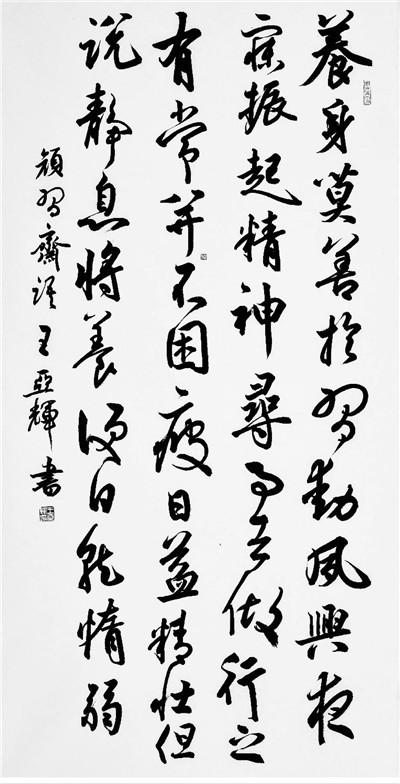 養身莫善於習動夙興夜
寐振起精神尋事去做行之
有常並不困疲日益精壯但
説靜息將養便日就惰弱
顏習齋語王亞輝書